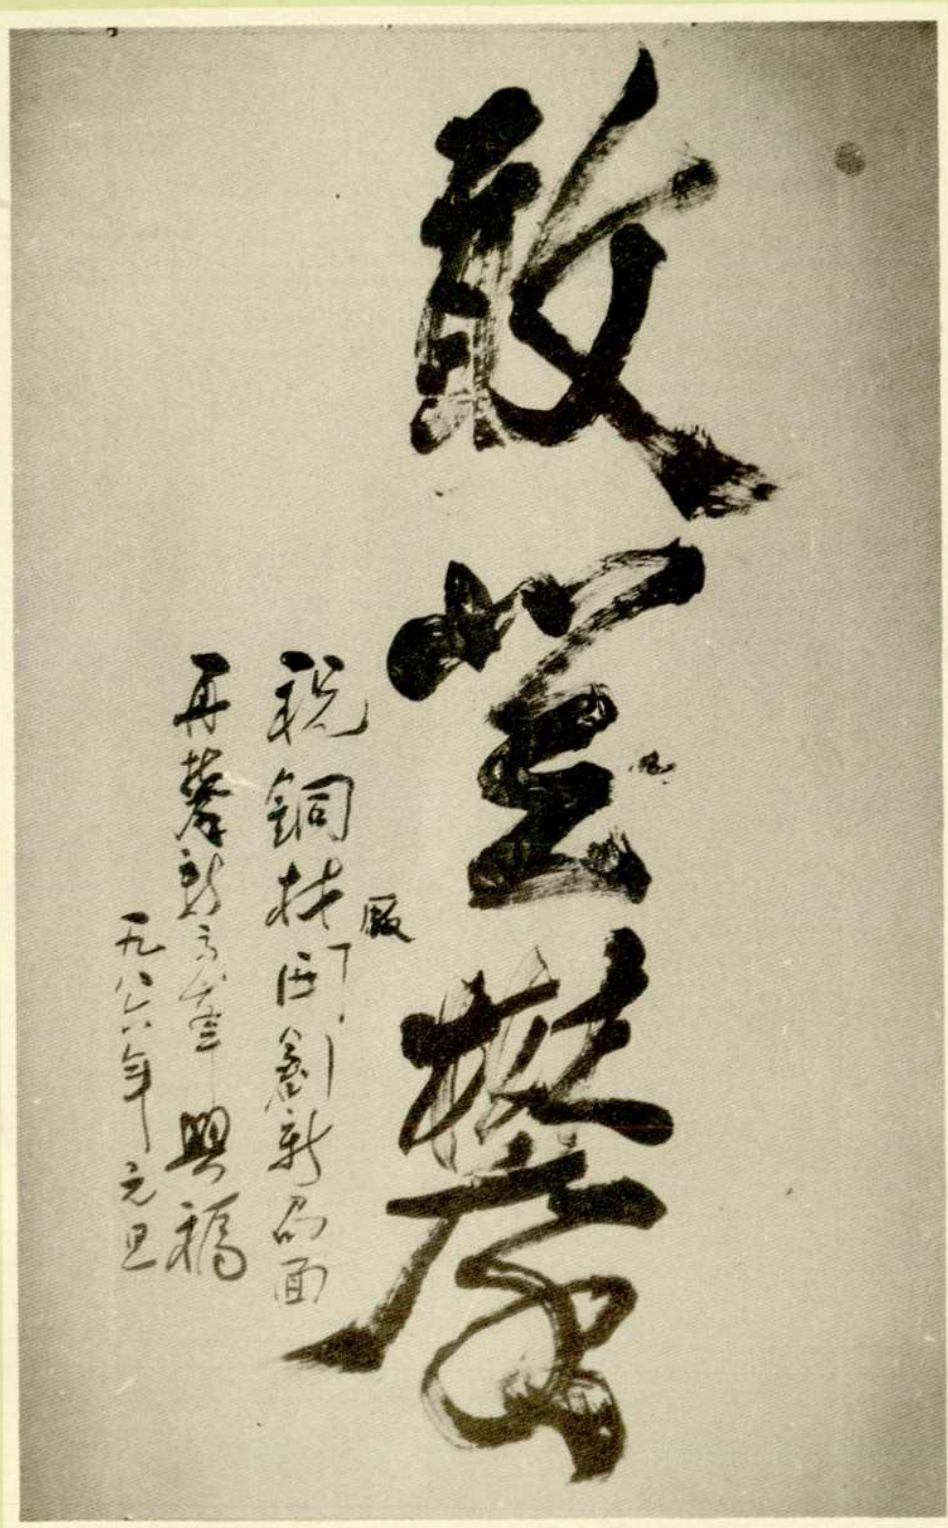 敢登攀
祝铜材厂开创新局面
再攀新高峰
一九八六年元旦